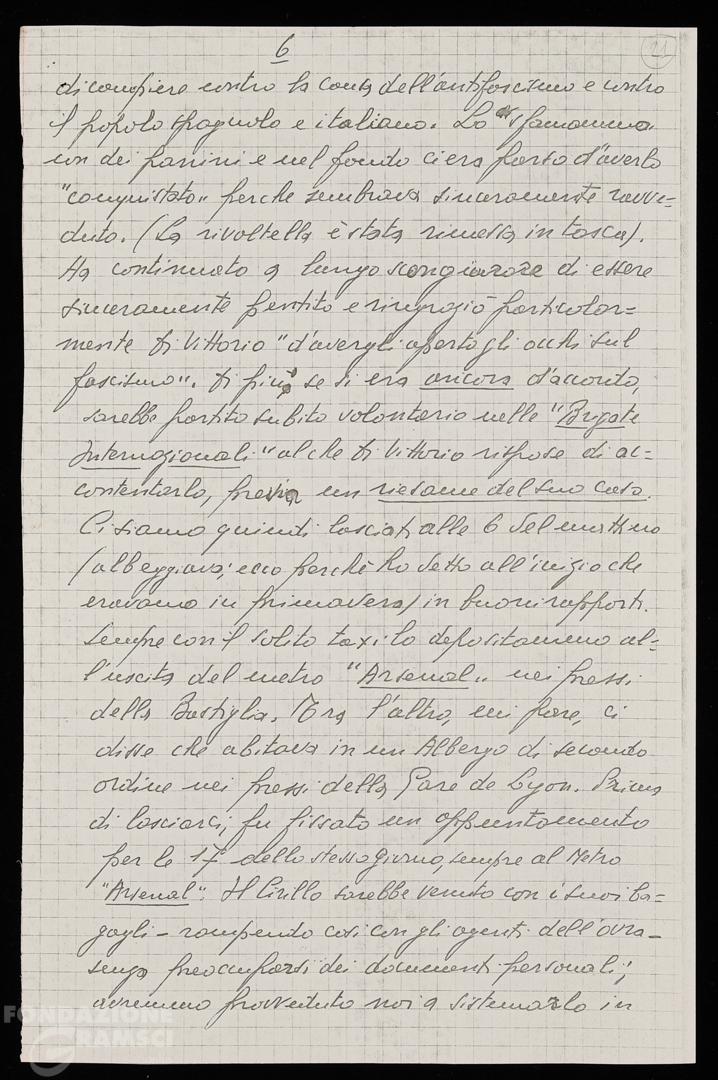 6
21
di compiere contro la causa dell'antifascismo e contro
il popolo spagnolo e italiano. Lo sfamammo
con dei panini e nel fondo ci era parso d'averlo
"conquistato" perche sembrava sinceramente ravve=
duto. (La rivoltella è stata rimessa in tasca).
Ha continuato a lungo scongiurare di essere
sinceramente pentito e ringraziò particolar=
mente Di Vittorio "d'avergli aperto gli occhi sul
fascismo". Di più, se si era ancora d'accordo,
sarebbe partito subito volontario nelle "Brigate
Internazionali" al che Di Vittorio rispose di ac=
contentarlo, previa un riesame del suo caso.
Ci siamo quindi lasciati alle 6 del mattino
(albeggiava; ecco perchè ho detto all'inizio che
eravamo in primavera) in buoni rapporti.
Sempre con il solito taxi lo depositammo al=
l'uscita del metro "Arsenal" nei pressi
della Bastiglia. Tra l'altro, mi pare, ci
disse che abitava in un Albergo di secondo
ordine nei pressi della Gare de Lyon. Prima
di lasciarci, fu fissato un appuntamento
per le 17 dello stesso giorno, sempre al Metro
"Arsenal". Il Cirillo sarebbe venuto con i suoi ba=
gagli – rompendo cosi con gli agenti dell'ovra –
senza preoccuparsi dei documenti personali;
avremmo provveduto noi a sistemarlo in
FONDAZIONE
GRAMSCI